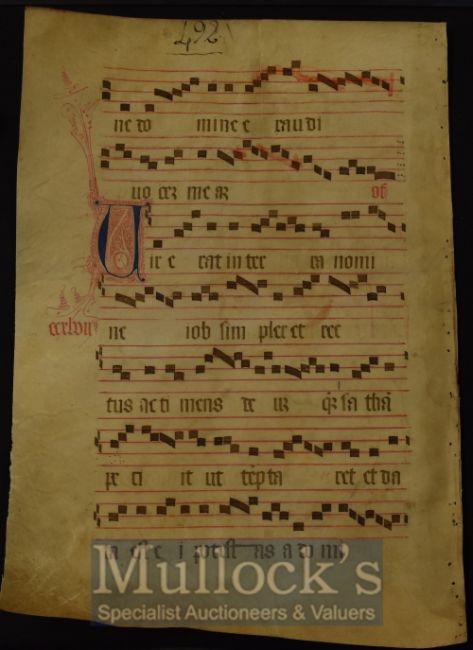 492
ne do mine e xaudi
vo cez me az
of
Vir e rat in ter ra nomi
ccxlvii
ne iob sim plex et rec
tus ac ti mens de uz q̃z sa thã
pe ti it ut tẽpta ret et da
ta est e i potest as a do mi
Mullock's
Specialist Auctioneers & Valuers